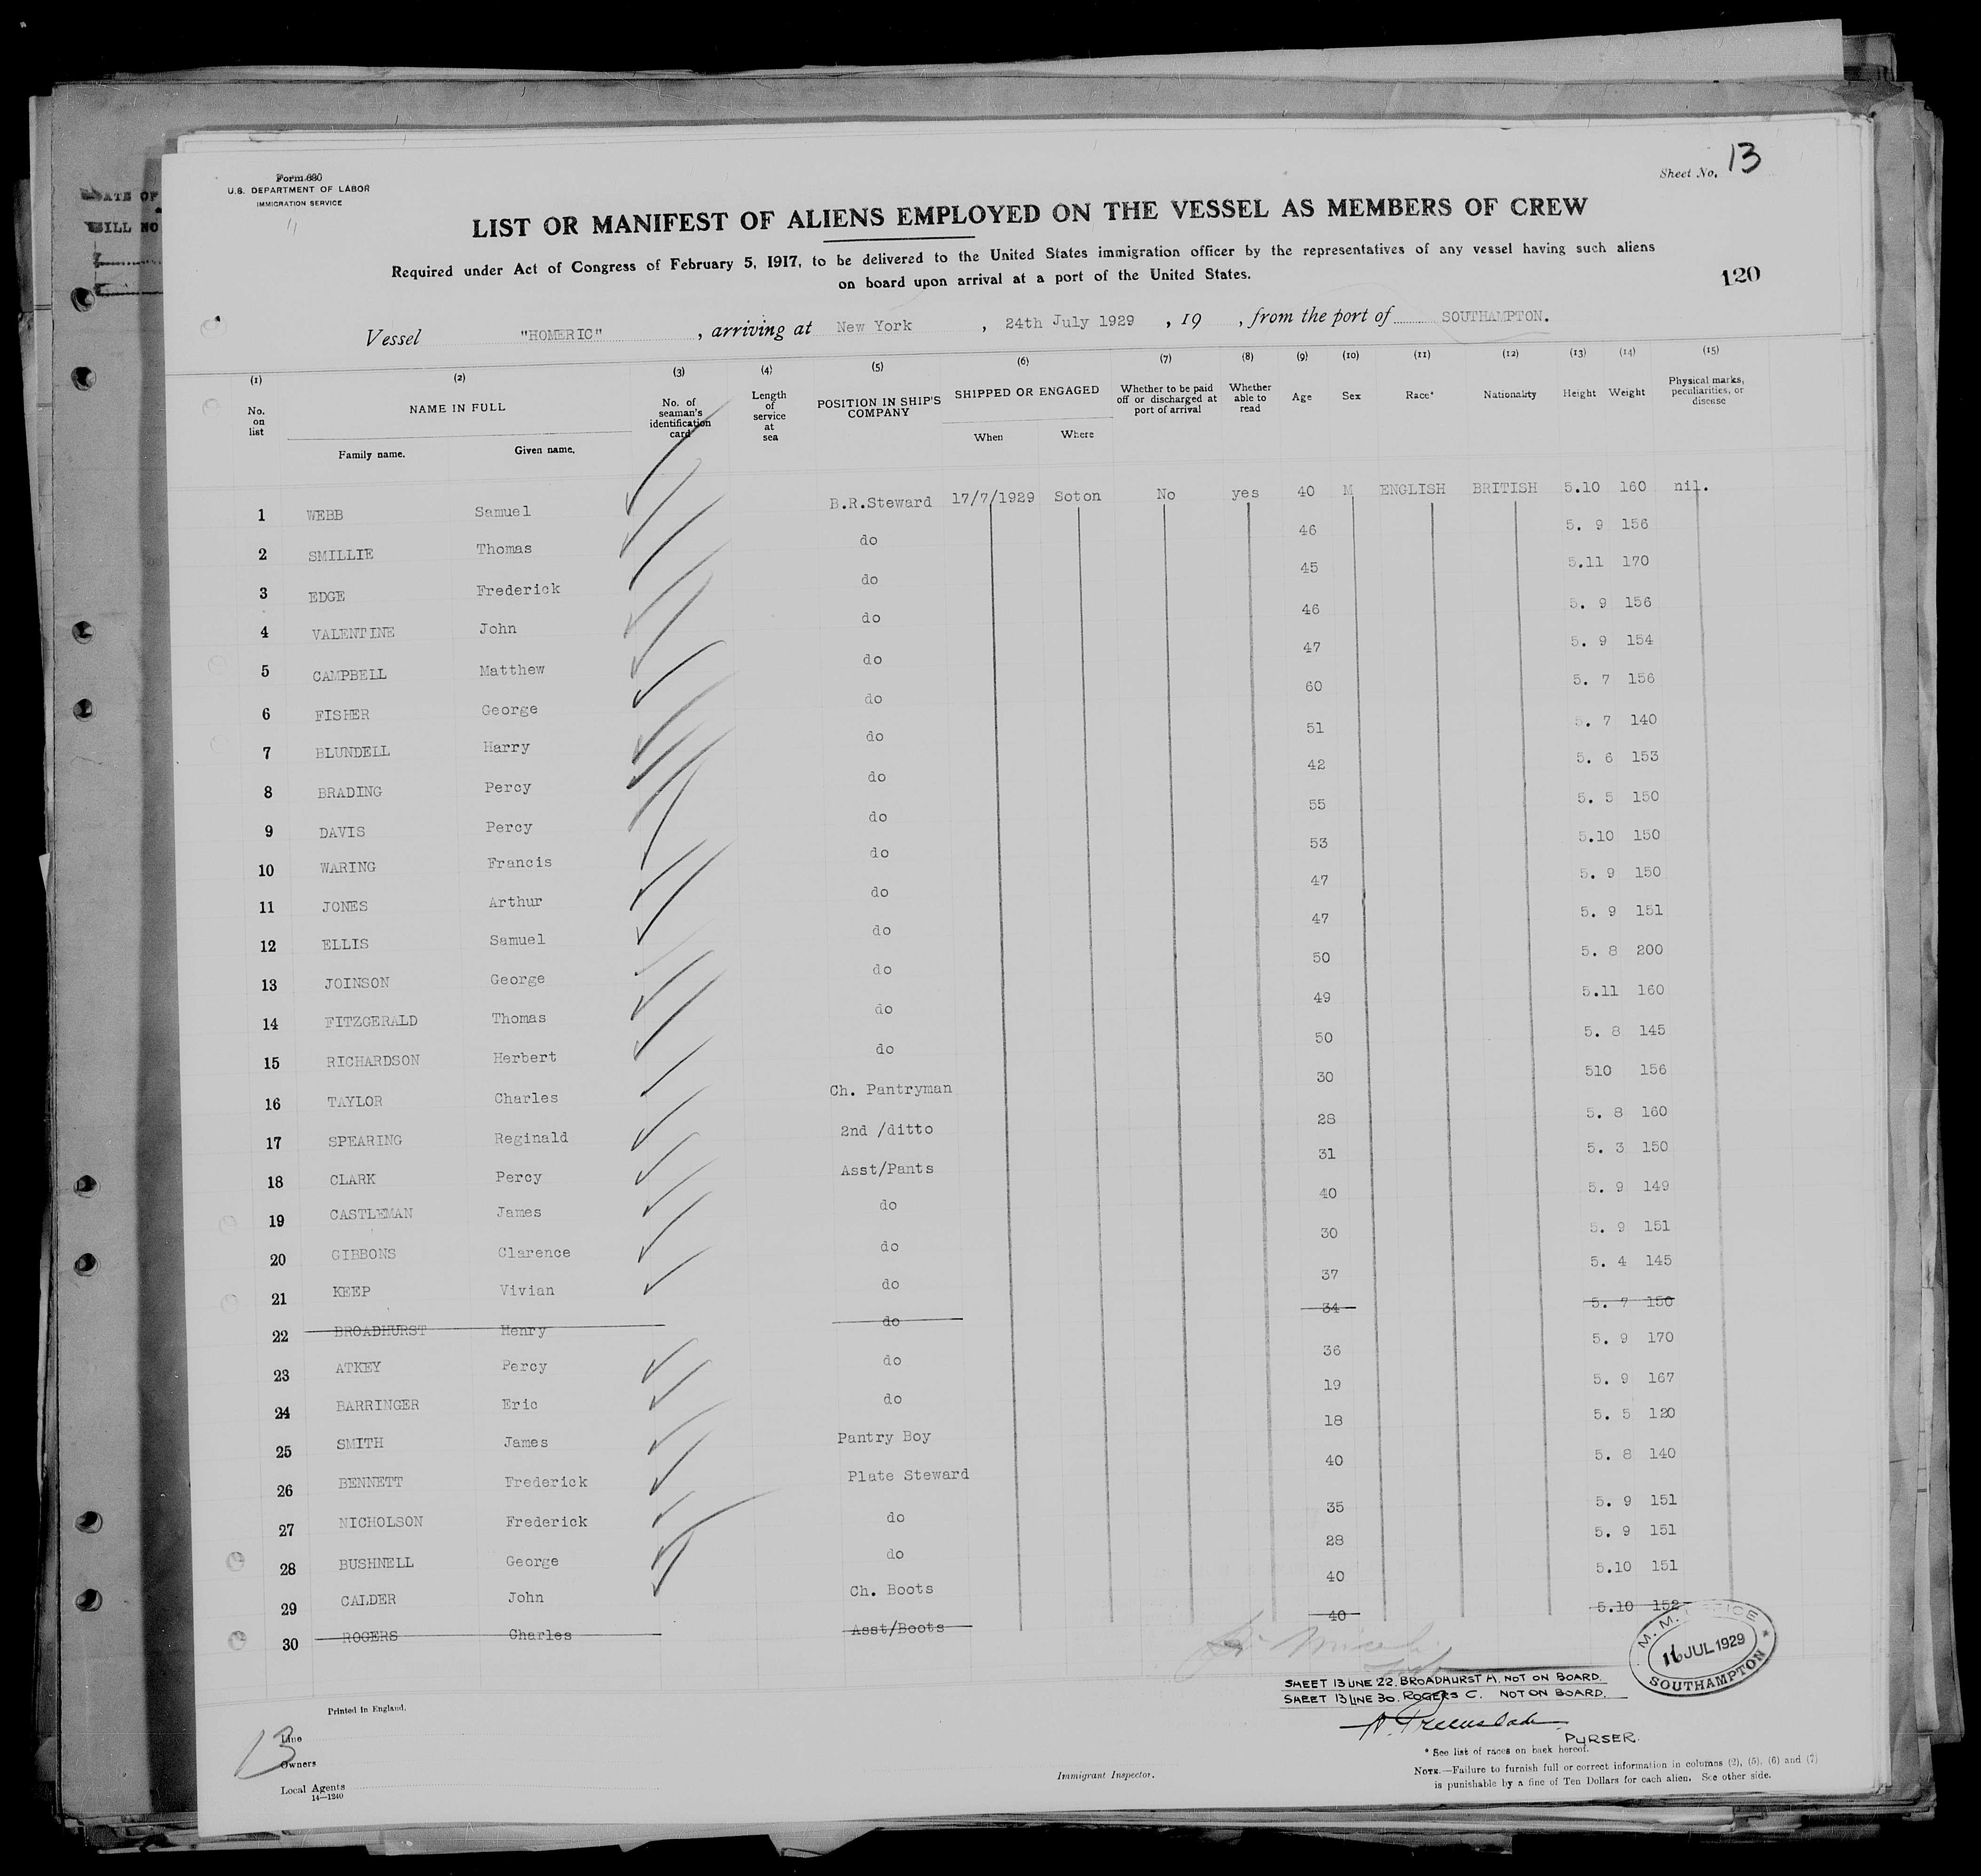 ATE OF
BILL NO
Form 680
U.S. DEPARTMENT OF LABOR
IMMIGRATION SERVICE
Sheet No. 13
LIST OR MANIFEST OF ALIENS EMPLOYED ON THE VESSEL AS MEMBERS OF CREW
Required under Act of Congress of February 5, 1917, to be delivered to the United States immigration officer by the representatives of any vessel having such aliens
on board upon arrival at a port of the United States.
120
Vessel "HOMERIC" , arriving at New York , 24th July 1929 , 19 , from the port of SOUTHAMPTON.
(1) (2) (3) (4) (5) (6) (7) (8) (9) (10) (11) (12) (13) (14) (15)
No. on list NAME IN FULL Family name. Given name. No. of seaman's identification card Length of service at sea POSITION IN SHIP'S COMPANY SHIPPED OR ENGAGED When Where Whether to be paid off or discharged at port of arrival Whether able to read Age Sex Race* Nationality Height Weight Physical marks, peculiarities, or disease
1 WEBB Samuel B.R.Steward 17/7/1929 Soton No yes 40 M ENGLISH BRITISH 5.10 160 nil.
2 SMILLIE Thomas do 46 5. 9 156
3 EDGE Frederick do 45 5.11 170
4 VALENTINE John do 46 5. 9 156
5 CAMPBELL Matthew do 47 5. 9 154
6 FISHER George do 60 5. 7 156
7 BLUNDELL Harry do 51 5. 7 140
8 BRADING Percy do 42 5. 6 153
9 DAVIS Percy do 55 5. 5 150
10 WARING Francis do 53 5.10 150
11 JONES Arthur do 47 5. 9 150
12 ELLIS Samuel do 47 5. 9 151
13 JOINSON George do 50 5. 8 200
14 FITZGERALD Thomas do 49 5.11 160
15 RICHARDSON Herbert do 50 5. 8 145
16 TAYLOR Charles Ch. Pantryman 30 510 156
17 SPEARING Reginald 2nd /ditto 28 5. 8 160
18 CLARK Percy Asst/Pants 31 5. 3 150
19 CASTLEMAN James do 40 5. 9 149
20 GIBBONS Clarence do 30 5. 9 151
21 KEEP Vivian do 37 5. 4 145
22 BROADHURST Henry do 34 5. 7 150
23 ATKEY Percy do 36 5. 9 170
24 BARRINGER Eric do 19 5. 9 167
25 SMITH James Pantry Boy 18 5. 5 120
26 BENNETT Frederick Plate Steward 40 5. 8 140
27 NICHOLSON Frederick do 35 5. 9 151
28 BUSHNELL George do 28 5. 9 151
29 CALDER John Ch. Boots 40 5.10 151
30 ROGERS Charles Asst/Boots 40 5.10 152
M. M. OFFICE
16 JUL 1929
SOUTHAMPTON
SHEET 13 LINE 22. BROADHURST H. NOT ON BOARD.
SHEET 13 LINE 30. ROGERS C. NOT ON BOARD.
PURSER.
Printed in England.
13
Line
Owners
Local Agents
14—1240
Immigrant Inspector.
* See list of races on back hereof.
NOTE.—Failure to furnish full or correct information in columns (2), (5), (6) and (7)
is punishable by a fine of Ten Dollars for each alien. See other side.